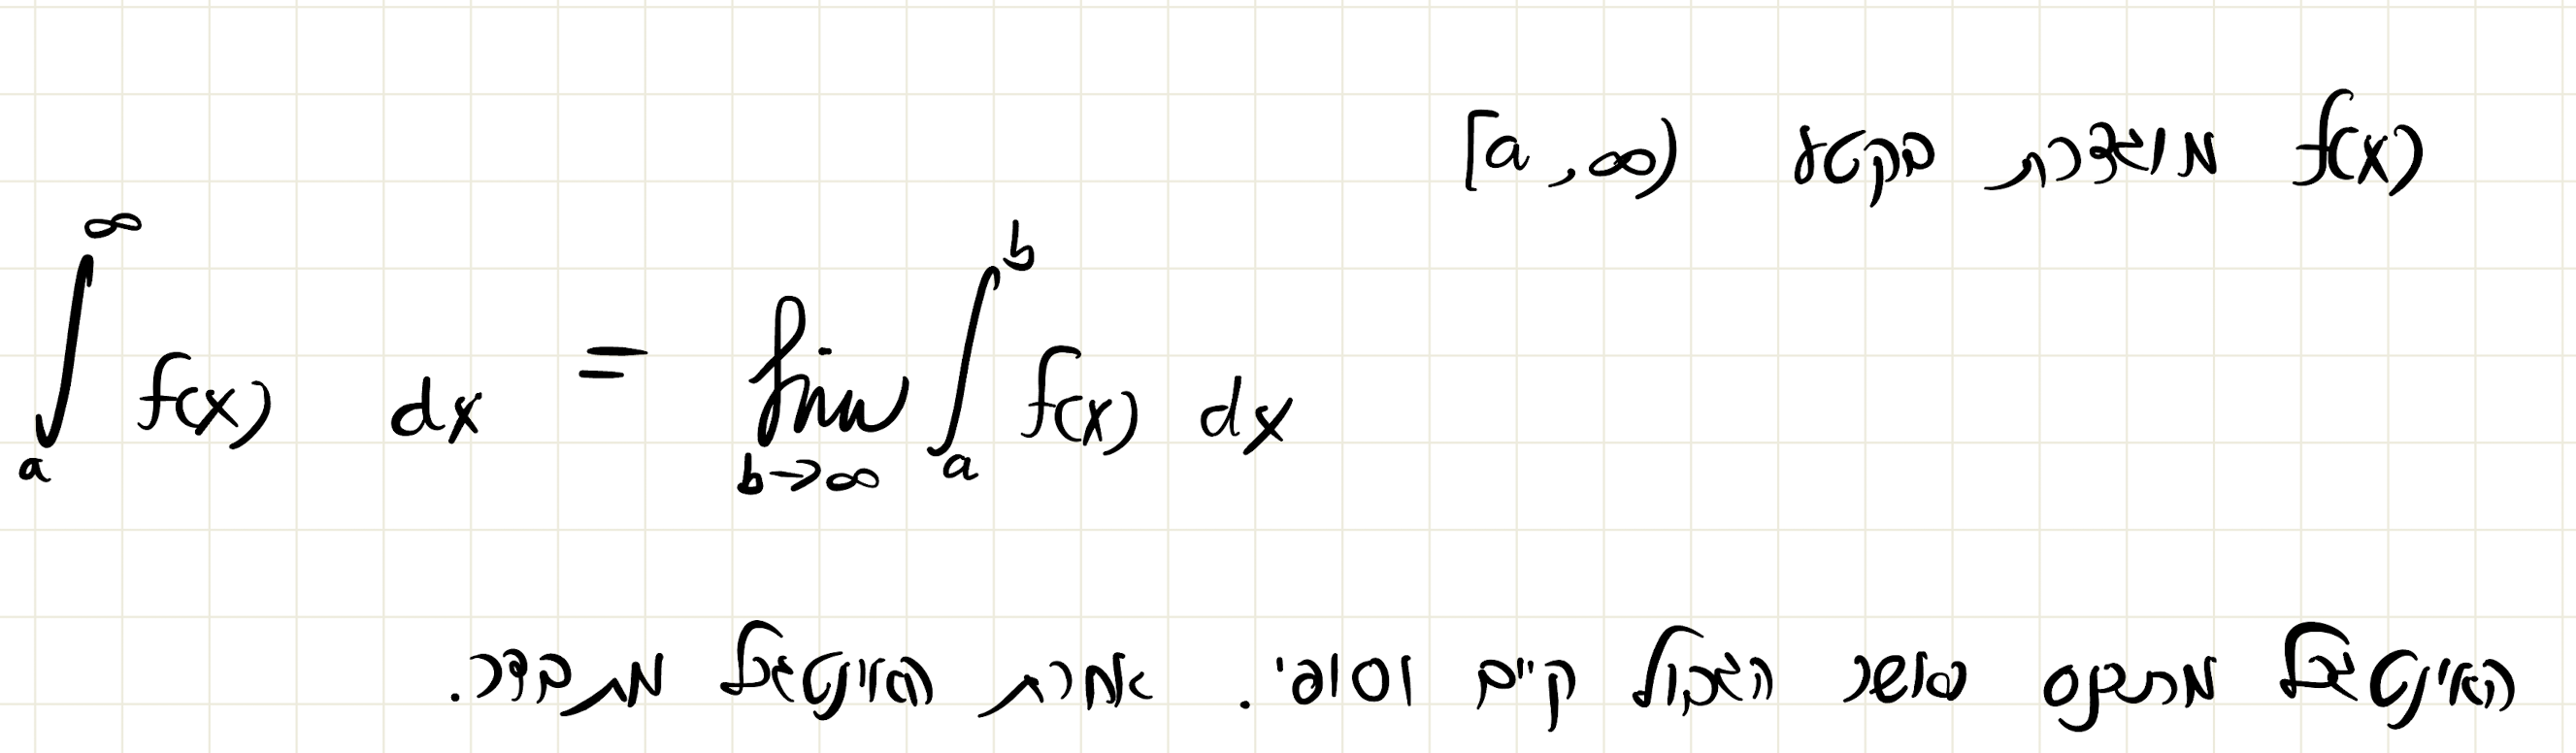 f(x) מוגדרת בקטע [a, ∞)
∫_a^∞ f(x) dx = lim_{b→∞} ∫_a^b f(x) dx
האינטגרל מתכנס כאשר הגבול קיים וסופי. אחרת האינטגרל מתבדר.